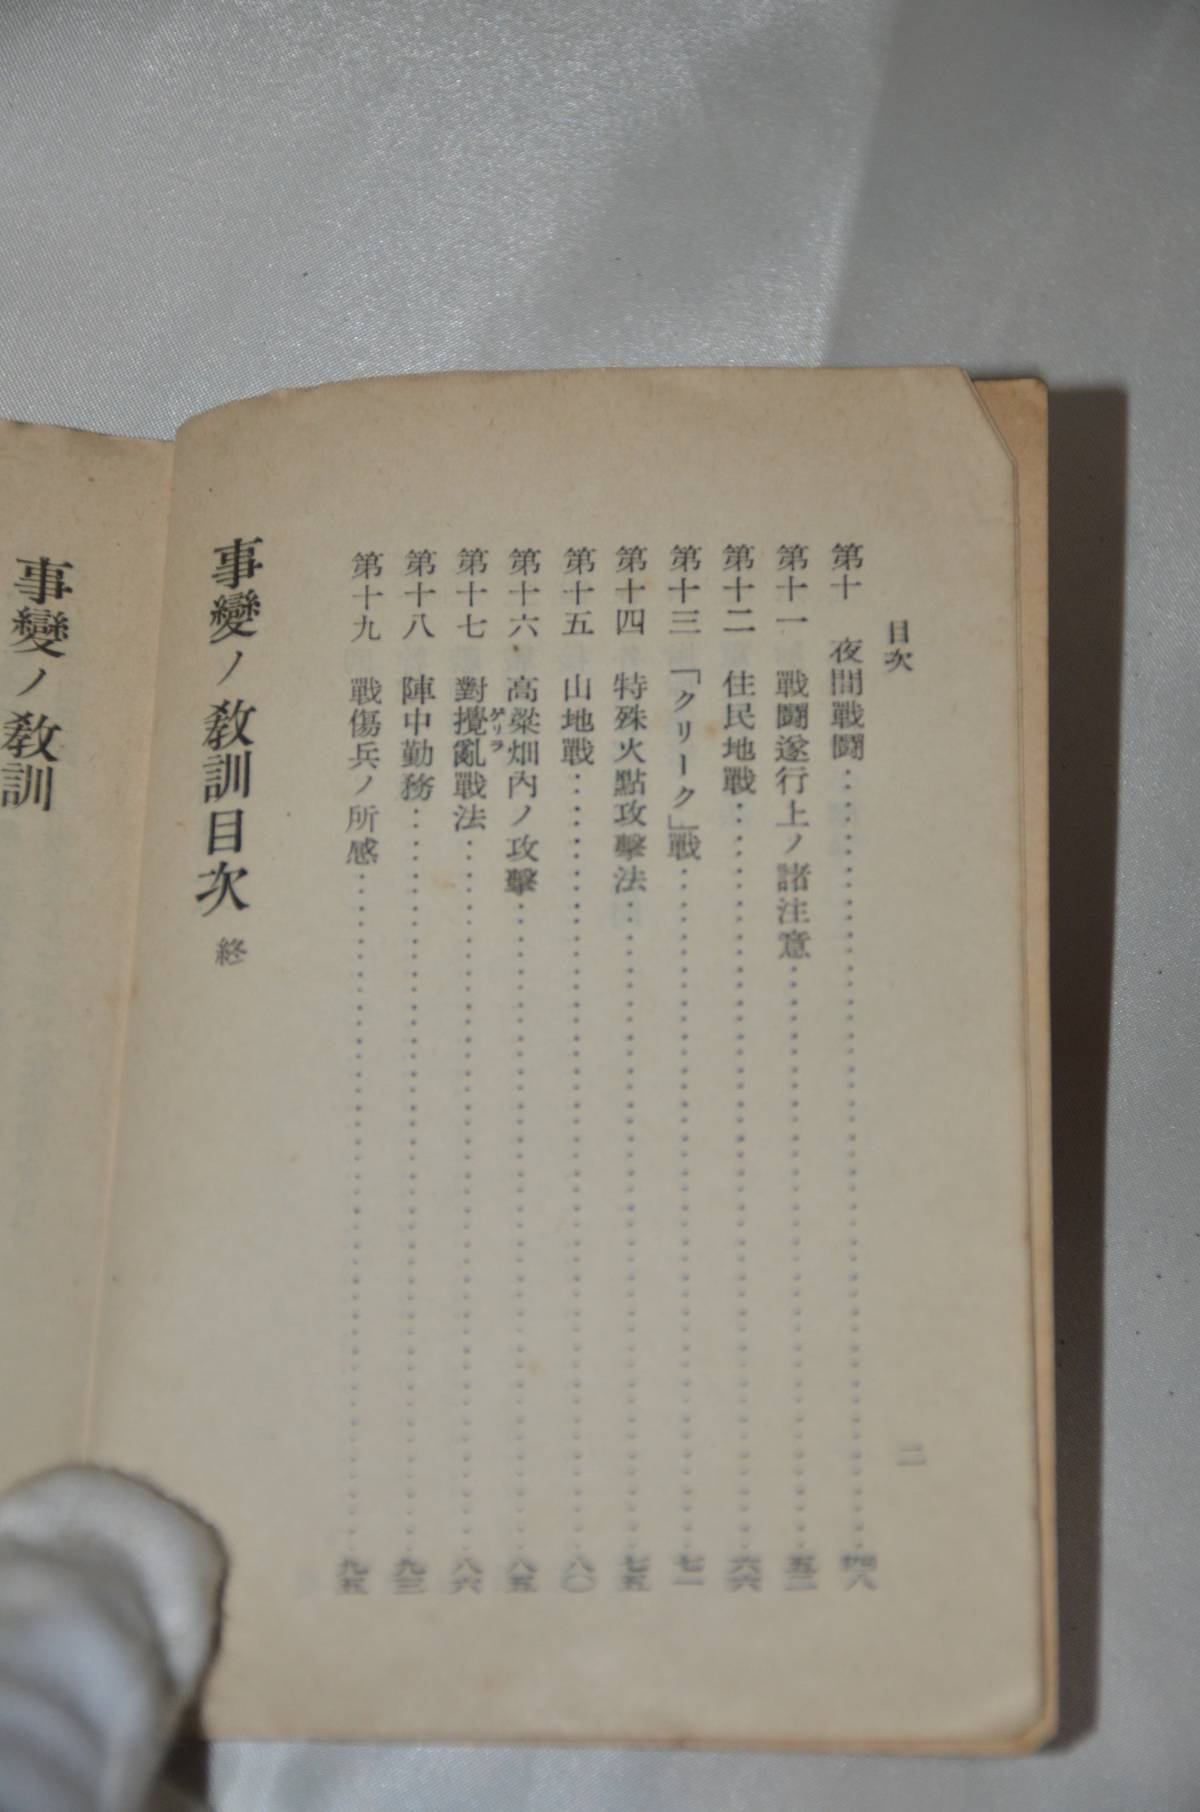 目次
二
第十 夜間戰鬪……四八
第十一 戰鬪遂行上ノ諸注意……五二
第十二 住民地戰……六六
第十三 「クリーク」戰……七一
第十四 特殊火點攻擊法……七五
第十五 山地戰……八〇
第十六 高粱畑內ノ攻擊……八五
第十七 對攪亂戰法……八六
ゲリラ
第十八 陣中勤務……九三
第十九 戰傷兵ノ所感……九五
事變ノ敎訓目次 終
事變ノ敎訓